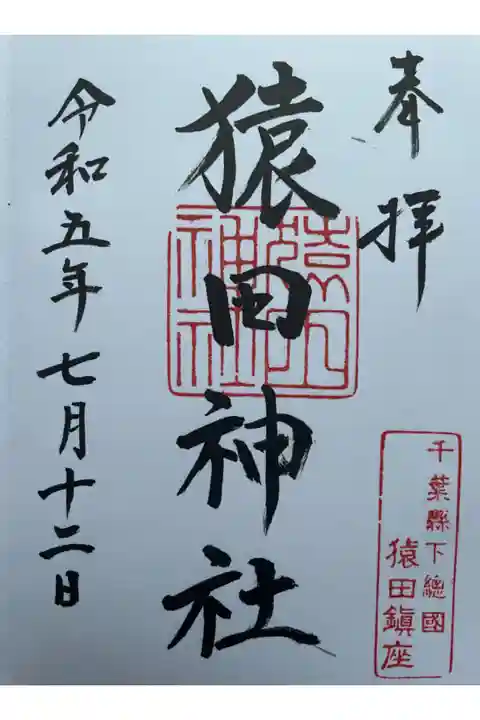 奉拝
千葉縣下總國
猿田鎮座
猿田神社
猿田
神社
令和五年七月十二日